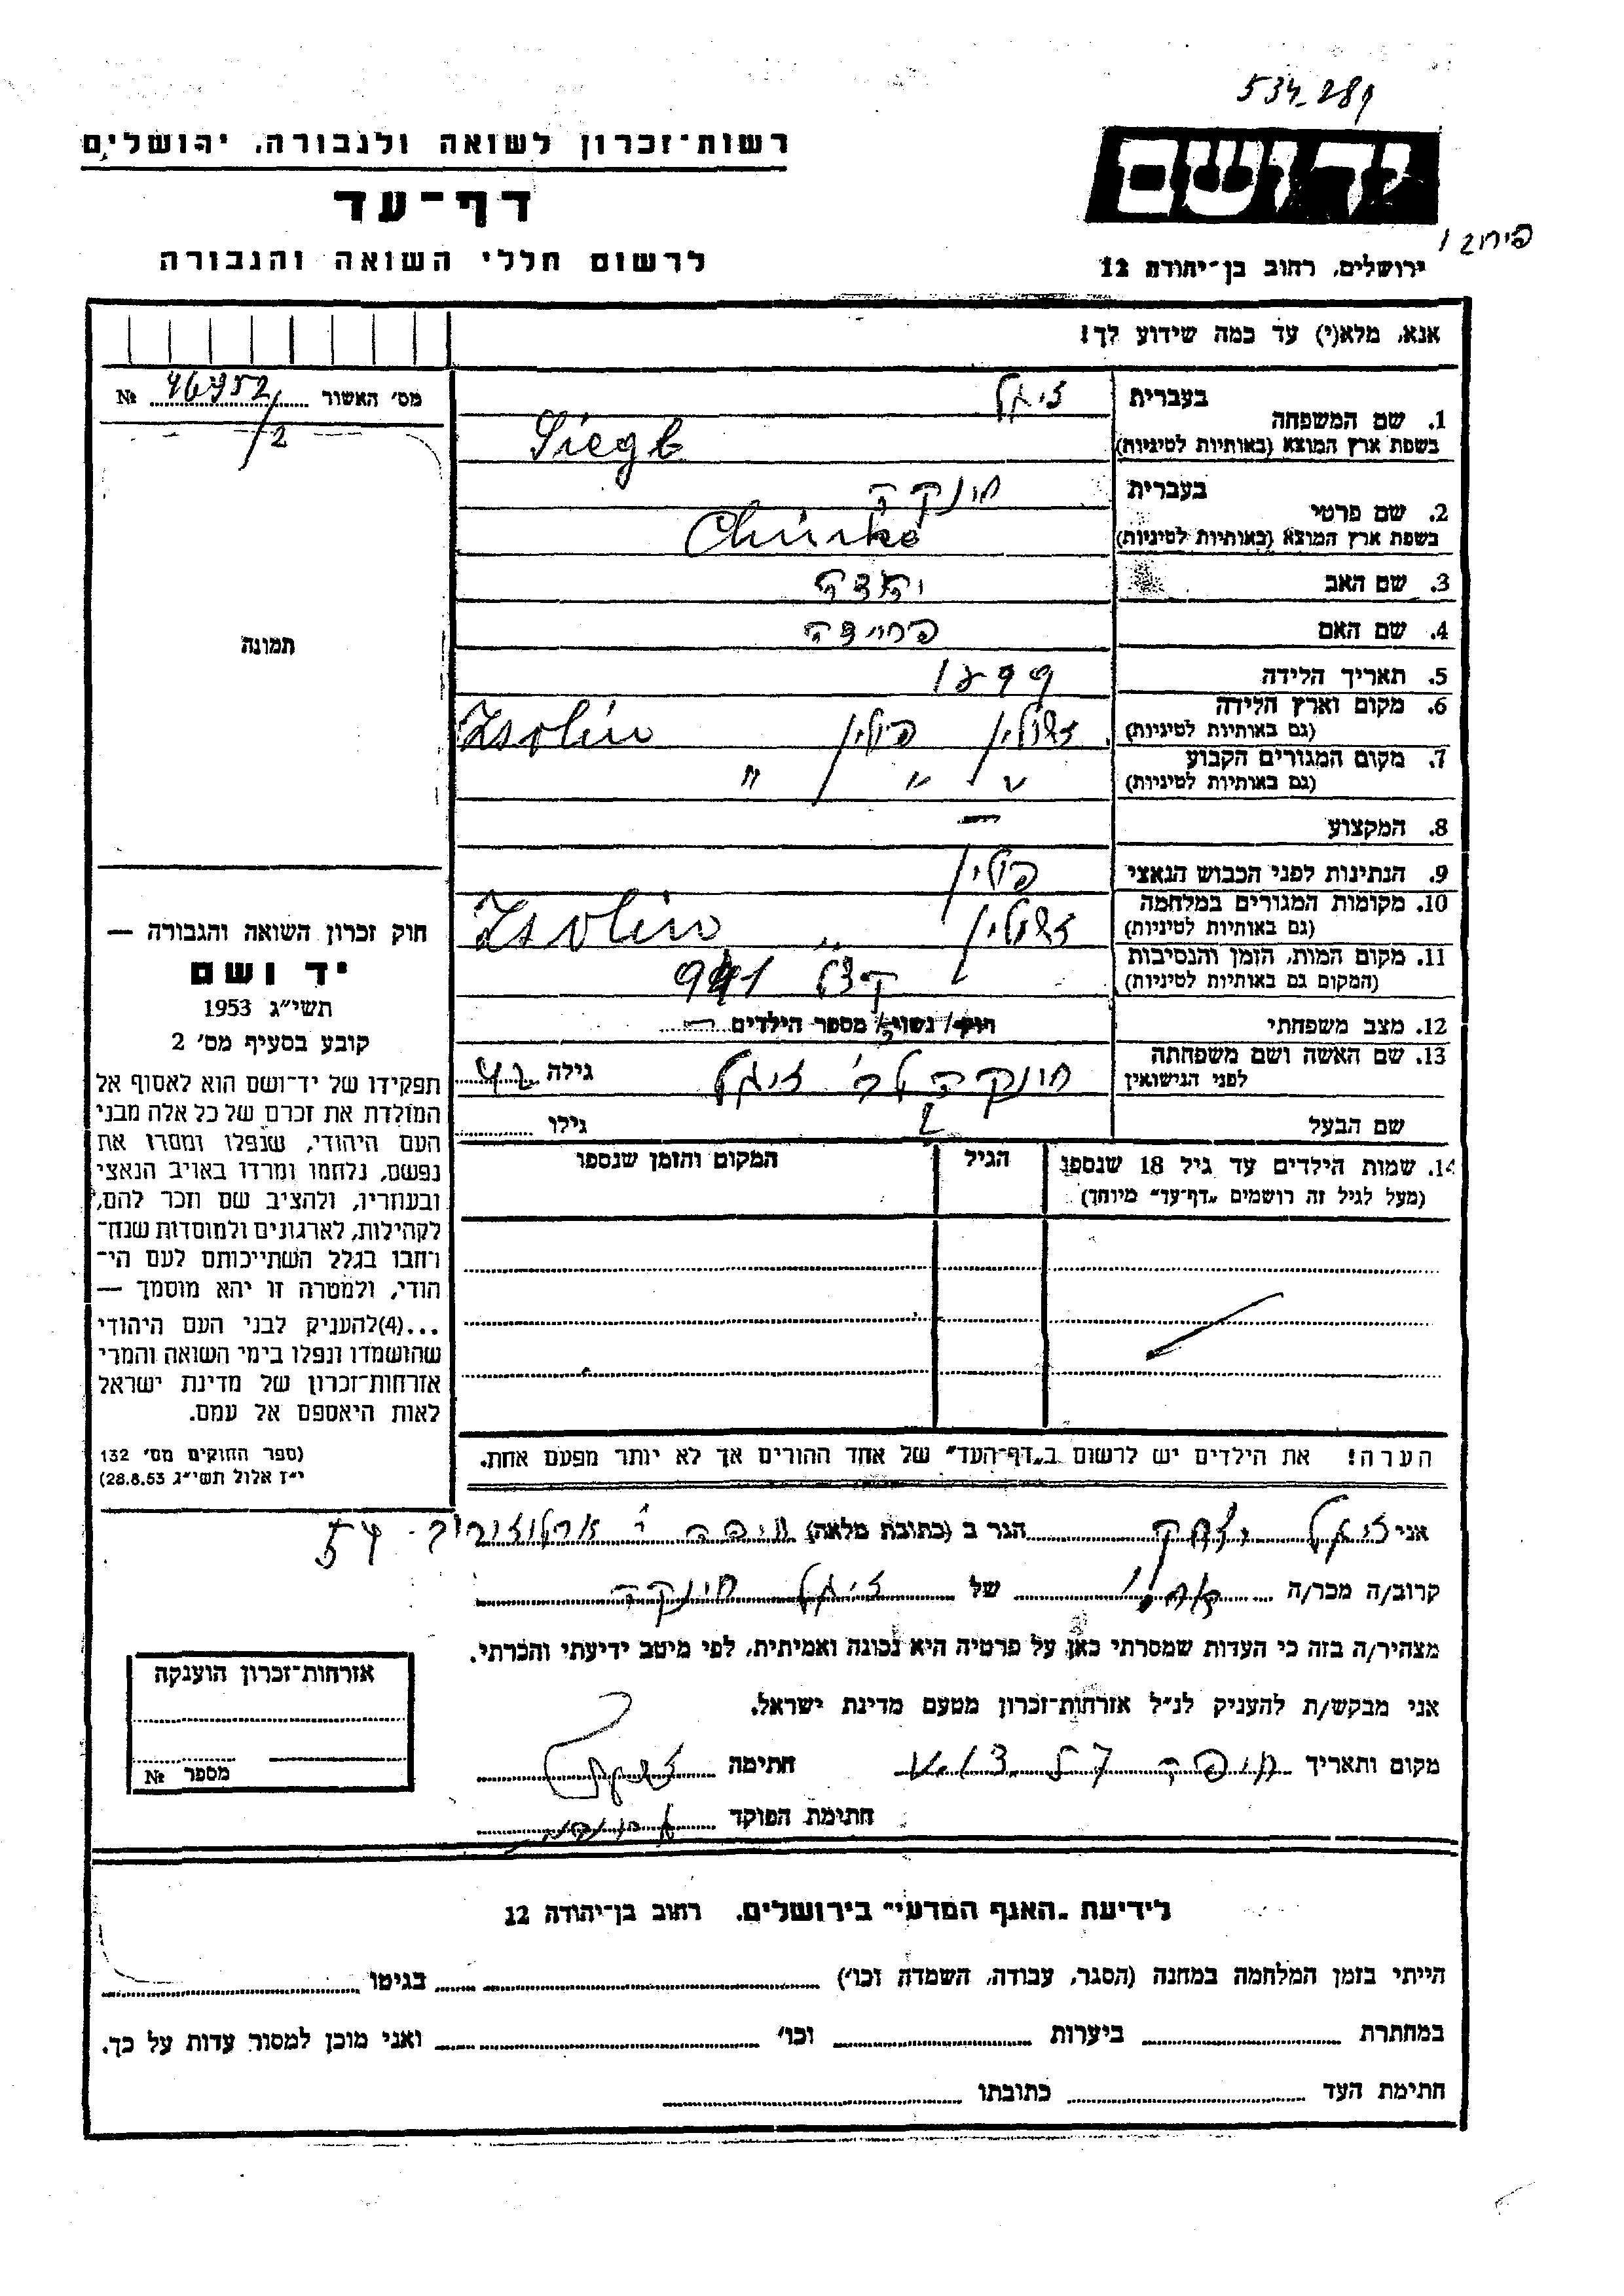 534-289
רשות־זכרון לשואה ולגבורה, ירושלים
יד ושם
דף־עד
לרשום חללי השואה והגבורה
ירושלים, רחוב בן־יהודה 12
אנא, מלא(י) עד כמה שידוע לך!
מס׳ האשור № 46952/2
1. שם המשפחה
בעברית זיגל
בשפת ארץ המוצא (באותיות לטיניות) Siegl
2. שם פרטי
בעברית חונקה
בשפת ארץ המוצא (באותיות לטיניות)
3. שם האב
4. שם האם פרידה
5. תאריך הלידה 1899
6. מקום וארץ הלידה (גם באותיות לטיניות) פולין Zsolin
7. מקום המגורים הקבוע (גם באותיות לטיניות) " " "
8. המקצוע —
9. הנתינות לפני הכבוש הנאצי פולין
10. מקומות המגורים במלחמה (גם באותיות לטיניות) Zsolin
11. מקום המות, הזמן והנסיבות (המקום גם באותיות לטיניות) 941
12. מצב משפחתי רווק/ נשוי/ מספר הילדים
13. שם האשה ושם משפחתה לפני הנישואין זיגל גילה 42
שם הבעל גילו
14. שמות הילדים עד גיל 18 שנספו (מעל לגיל זה רושמים „דף־עד״ מיוחד)
הגיל
המקום והזמן שנספו
הערה! את הילדים יש לרשום ב„דף־העד״ של אחד ההורים אך לא יותר מפעם אחת.
תמונה
חוק זכרון השואה והגבורה —
יד ושם
תשי״ג 1953
קובע בסעיף מס׳ 2
תפקידו של יד־ושם הוא לאסוף אל
המולדת את זכרם של כל אלה מבני
העם היהודי, שנפלו ומסרו את
נפשם, נלחמו ומרדו באויב הנאצי
ובעוזריו, ולהציב שם וזכר להם,
לקהילות, לארגונים ולמוסדות שנח־
רחבו בגלל השתייכותם לעם הי־
הודי, ולמטרה זו יהא מוסמך —
...(4)להעניק לבני העם היהודי
שהושמדו ונפלו בימי השואה והמרי
אזרחות־זכרון של מדינת ישראל
לאות היאספם אל עמם.
(ספר החוקים מס׳ 132
י״ז אלול תשי״ג 28.8.53)
אני זיגל יצחק הגר ב (כתובת מלאה) חיפה ארלוזורוב 54
קרוב/ה מכר/ה של זיגל חונקה
מצהיר/ה בזה כי העדות שמסרתי כאן על פרטיה היא נכונה ואמיתית, לפי מיטב ידיעתי והכרתי.
אני מבקש/ת להעניק לנ״ל אזרחות־זכרון מטעם מדינת ישראל.
מקום ותאריך חיפה חתימה
חתימת הפוקד
אזרחות־זכרון הוענקה
מספר №
לידיעת „האגף המדעי״ בירושלים, רחוב בן־יהודה 12
הייתי בזמן המלחמה במחנה (הסגר, עבודה, השמדה וכו׳) בגיטו
במחתרת ביערות וכו׳ ואני מוכן למסור עדות על כך.
חתימת העד כתובתו